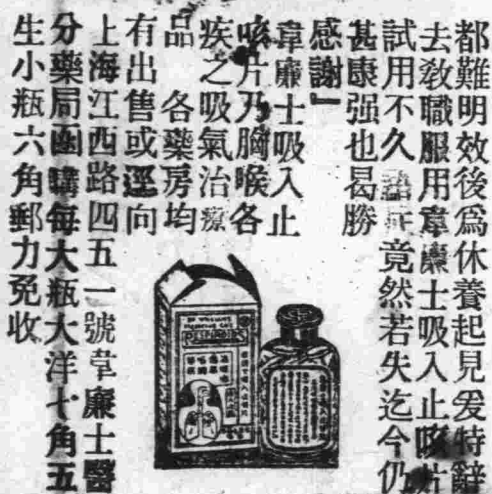 都難明效後爲休養起見爰特辭
去敎職服用韋廉士吸入止咳片
試用不久諸症竟然若失迄今仍
甚康强也曷勝
感謝』
韋廉士吸入止
咳片乃胸喉各
疾之吸氣治療
品　各藥房均
有出售或逕向
上海江西路四五一號韋廉士醫
分藥局函購每大瓶大洋七角五
生小瓶六角郵力免收